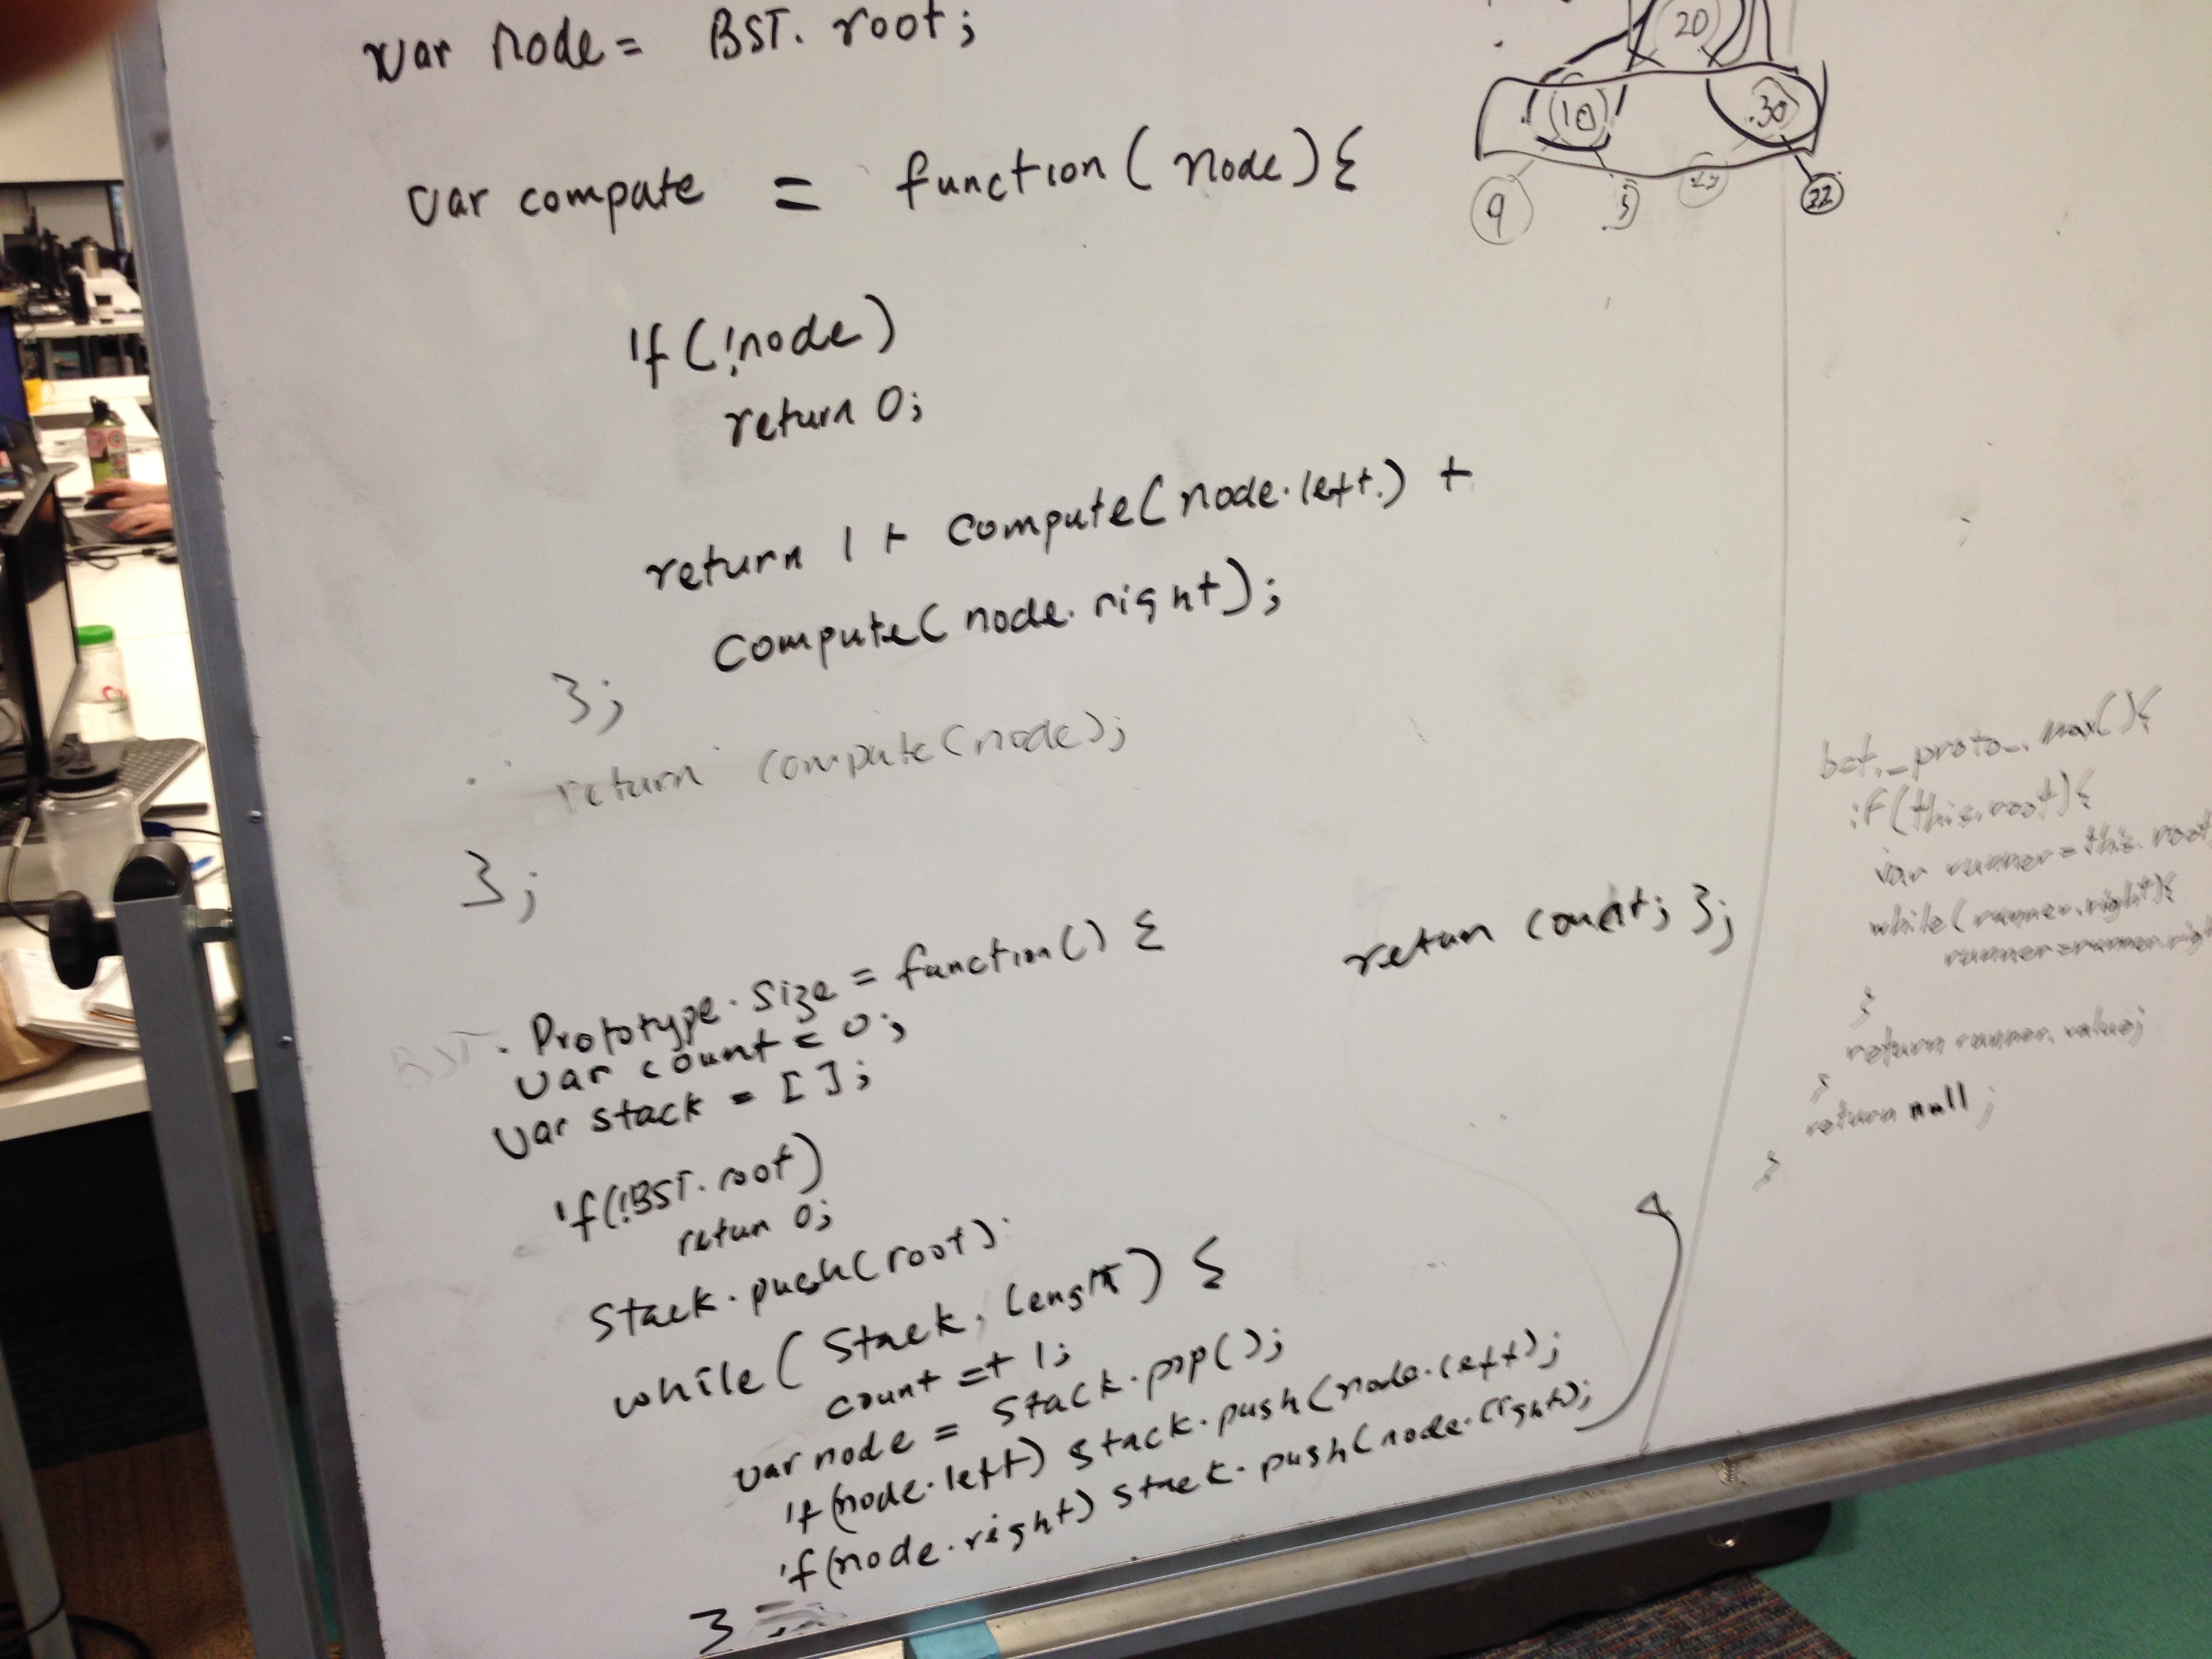 var node = BST. root;
var compute = function (node) {
if (!node)
return 0;
return 1 + compute(node.left.) +
compute(node.right);
};
return compute(node);
};
BST. Prototype.size = function() {
var count = 0;
var stack = [];
if(!BST.root)
retun 0;
Stack.push(root);
while (Stack. length) {
count =+ 1;
var node = Stack.pop();
if(node.left) stack.push(node.left);
if(node.right) stack.push(node.right);
}
retun count; };
20
10
30
9
5
22
bst._proto_.max(){
if(this.root){
var runner = this.root
while(runner.right){
runner=runner.righ
}
return runner.value;
}
return null;
}